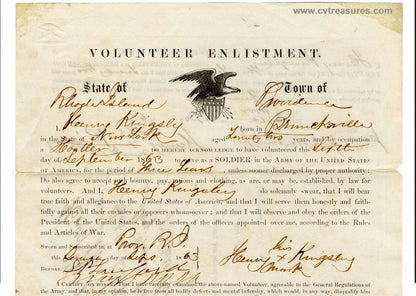 www.cvtreasures.com
VOLUNTEER ENLISTMENT.
State of Town of
Rhode Island Providence
I, Henry Kingsley born in
in the State of New York aged Twenty two years, and by occupation
a DO HEREBY ACKNOWLEDGE to have volunteered this
day of September 1863 to serve as a SOLDIER in the ARMY OF THE UNITED STATES
OF AMERICA, for the period of three years, unless sooner discharged by proper authority:
Do also agree to accept such bounty, pay, rations and clothing, as are, or may be, established, by law for
volunteers. And I, Henry Kingsley do solemnly swear, that I will bear
true faith and allegiance to the United States of America, and that I will serve them honestly and faith-
fully against all their enemies or opposers whomsoever; and that I will observe and obey the orders of the
President of the United States, and the orders of the officers appointed over me, according to the Rules
and Articles of War.
Sworn and subscribed to, at Prov. R.I. his
this day of Sept. 1863 Henry x Kingsley
BEFORE mark
I CERTIFY, ON HONOR, That I have carefully examined the above-named Volunteer, agreeably to the General Regulations
of the Army, and that, in my opinion, he is free from all bodily defects and mental infirmity, which would, in any way, disqualify him